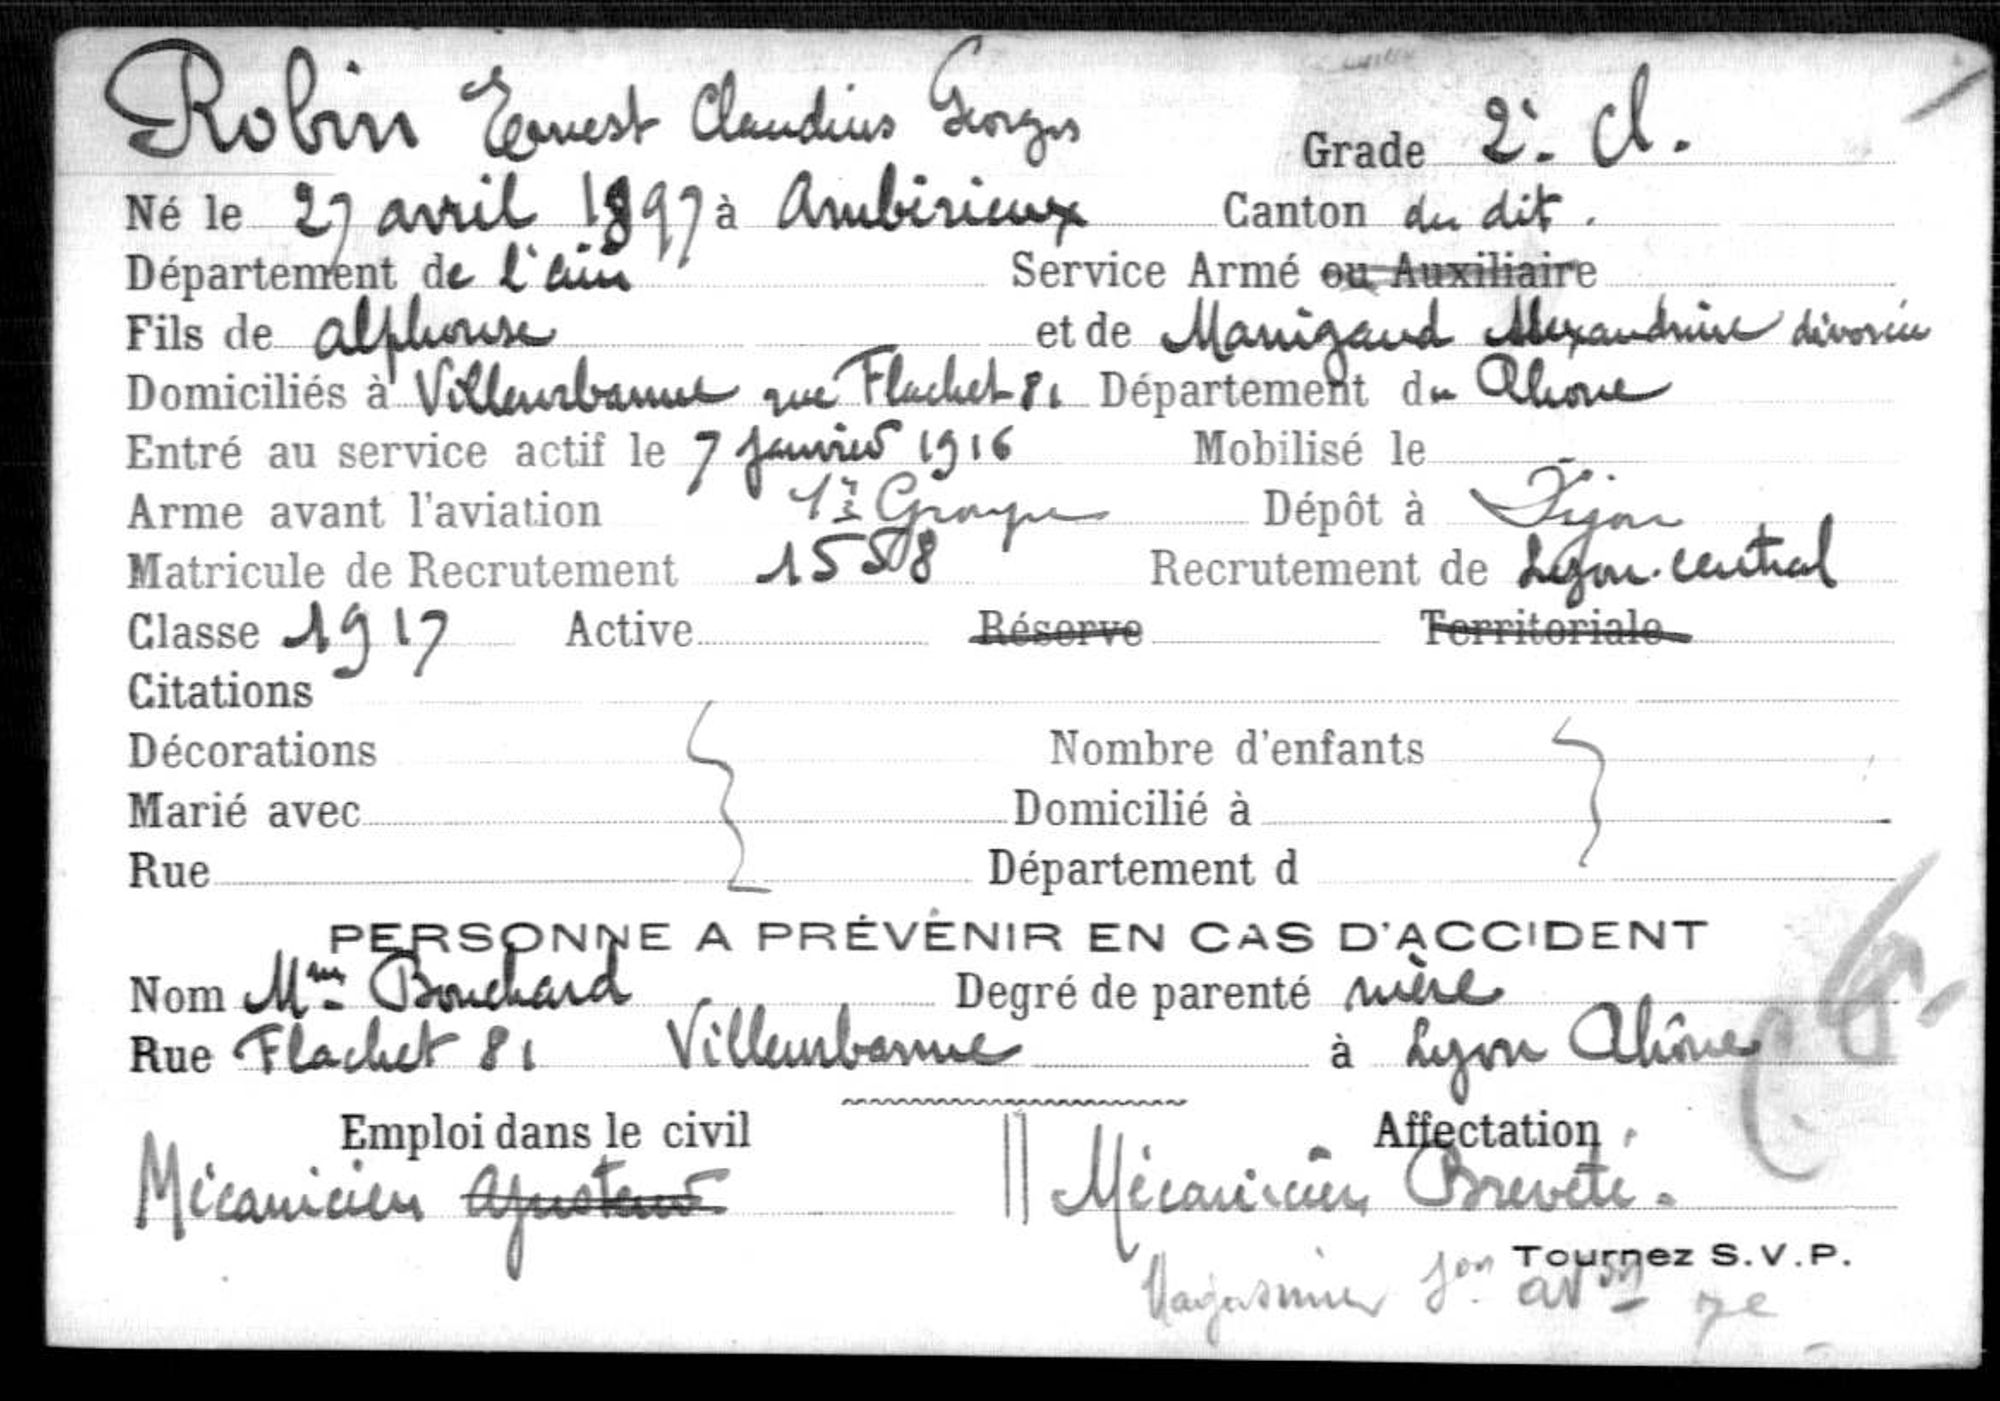 Robin Ernest Claudius Georges Grade 2e Cl.
Né le 27 avril 1897 à Ambérieux Canton du dit.
Département de l'ain Service Armé ou Auxiliaire
Fils de alphonse et de Manigaud Alexandrine divorcée
Domiciliés à Villeurbanne rue Flachet 81 Département du Rhone
Entré au service actif le 7 janvier 1916 Mobilisé le
Arme avant l'aviation 1er Groupe Dépôt à Dijon
Matricule de Recrutement 1558 Recrutement de Lyon central
Classe 1917 Active Réserve Territoriale
Citations
Décorations Nombre d'enfants
Marié avec Domicilié à
Rue Département d
PERSONNE A PRÉVENIR EN CAS D'ACCIDENT
Nom Mme Bouchard Degré de parenté mère
Rue Flachet 81 Villeurbanne à Lyon Rhône
Emploi dans le civil Affectation
Mécanicien ajusteur Mécanicien Breveté.
Tournez S.V.P.
Magasinier